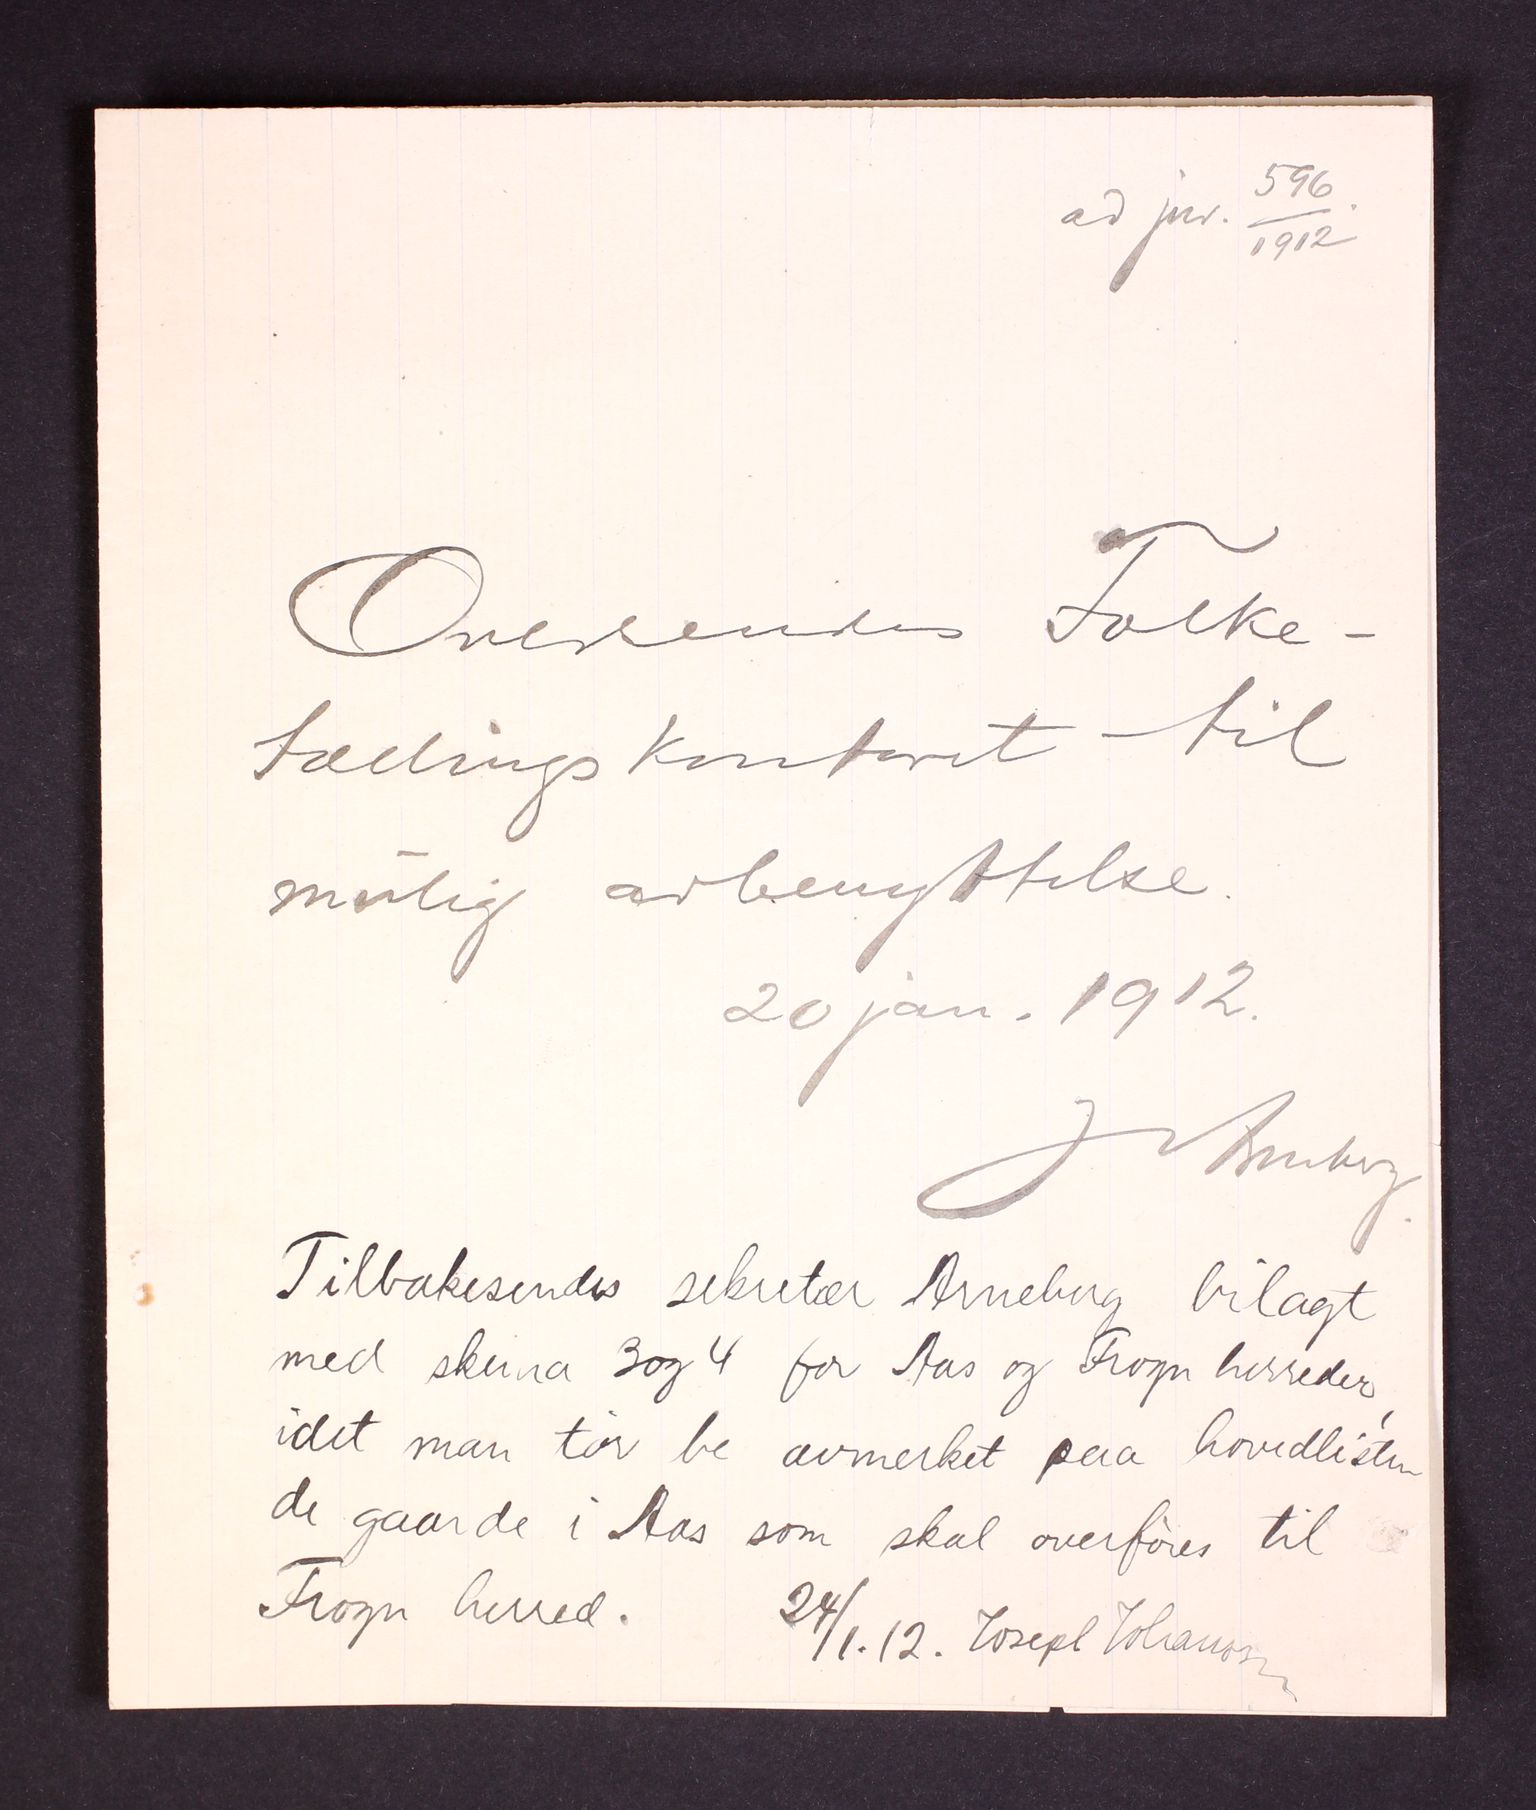 ad jnr. 596
1912
Oversendes Folke-
tællingskontoret til
mulig avbenyttelse.
20 jan. 1912.
J Arneberg.
Tilbakesendes sekretær Arneberg bilagt
med skema 3 og 4 for Aas og Frogn herreder,
idet man tør be avmerket paa hovedlisten
de gaarde i Aas som skal overføres til
Frogn herred.
24/1.12. Joseph Johanssen